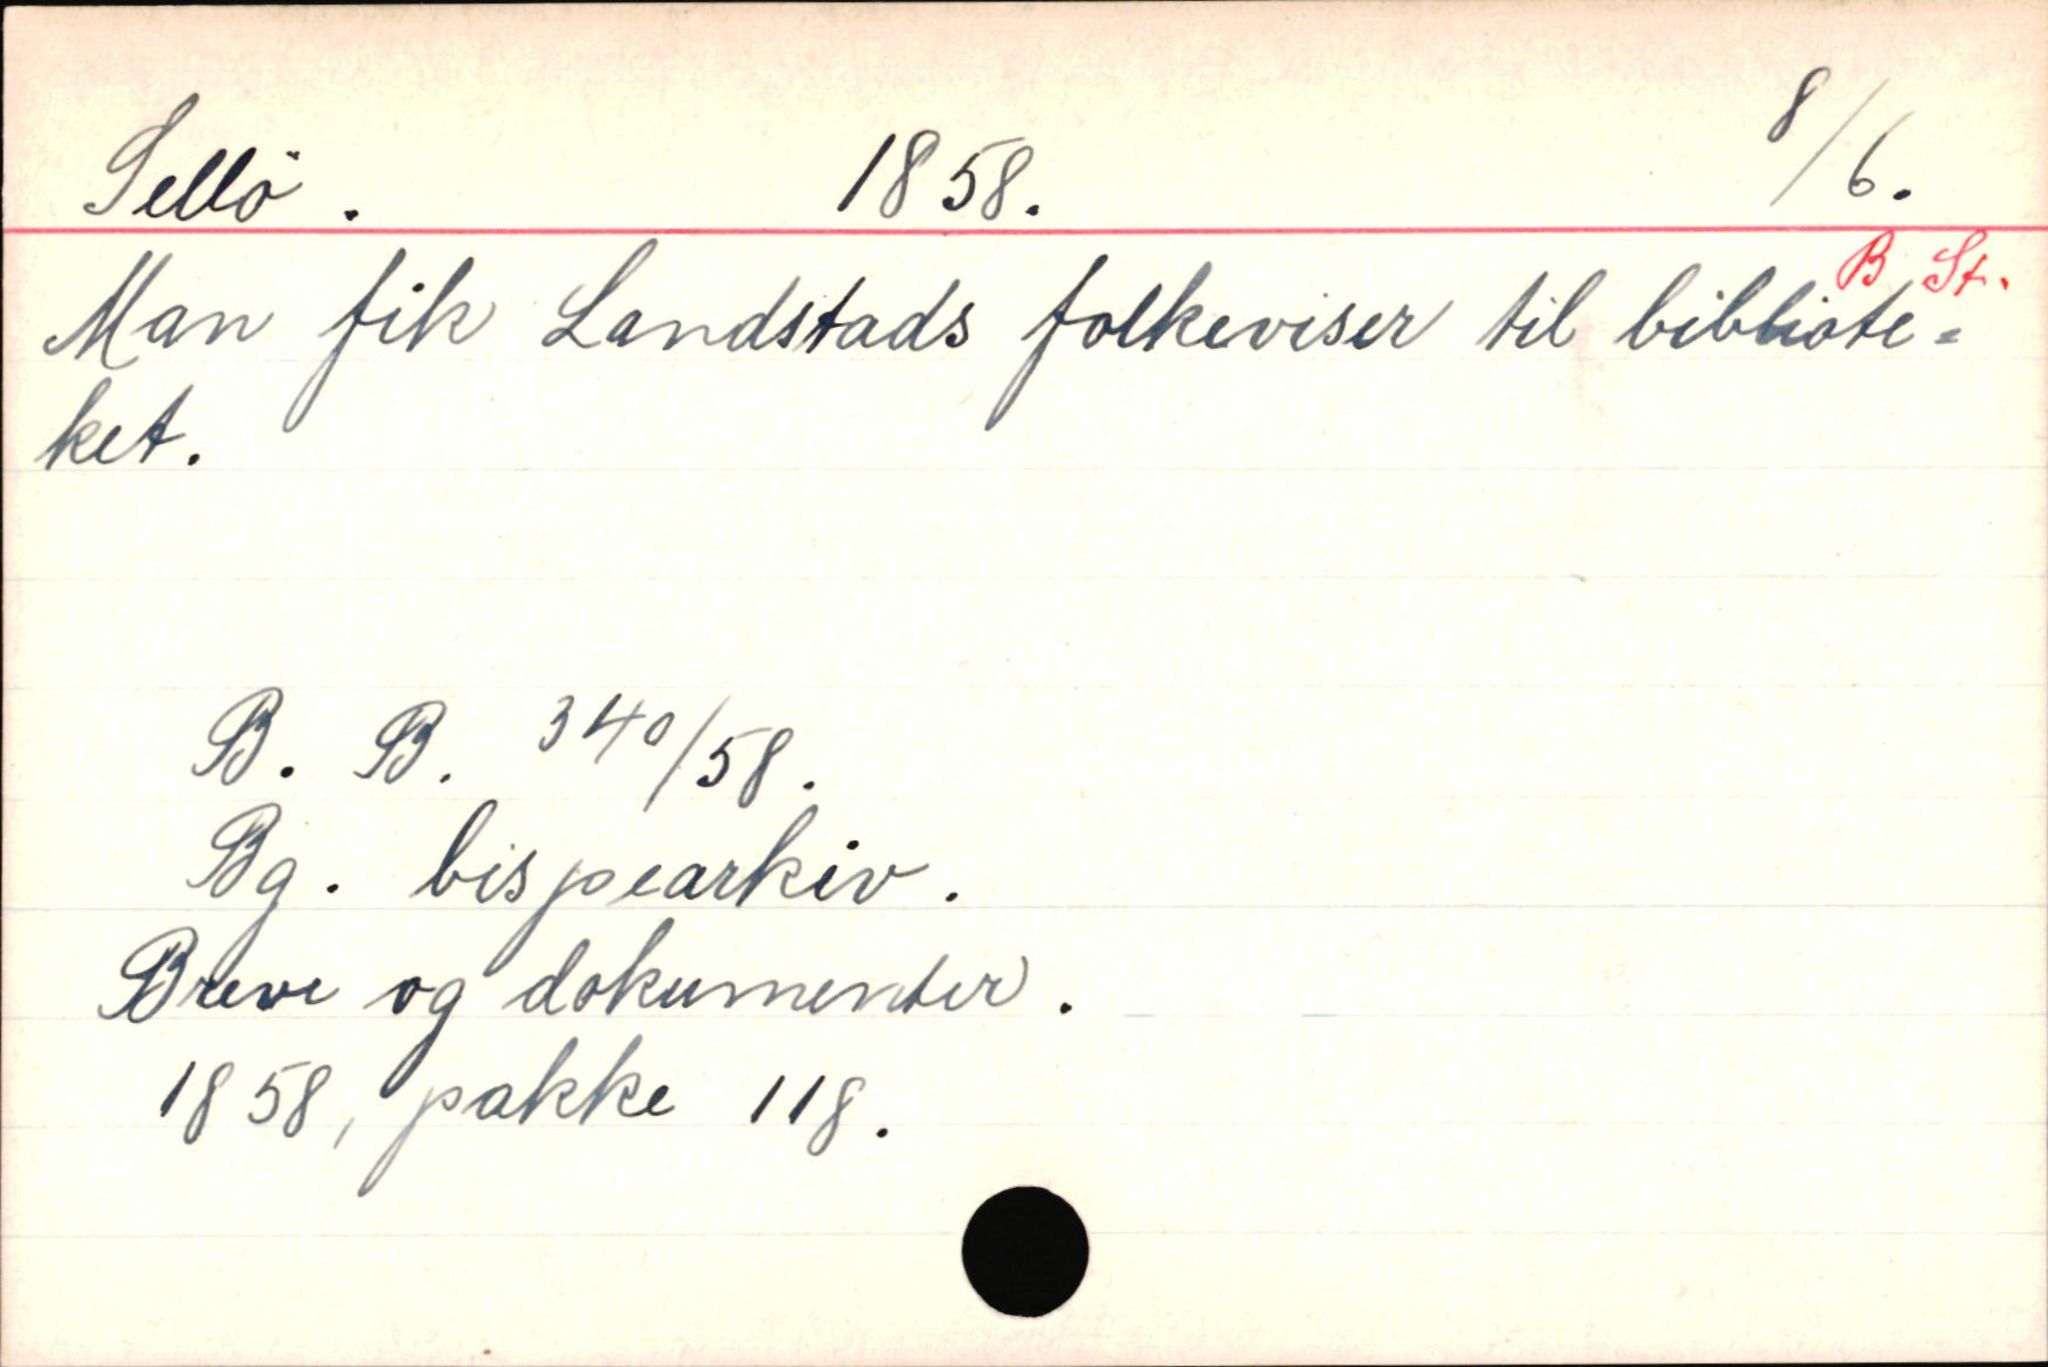 Sellö. 1858. 8/6.
B. St.
Man fik Landstads folkeviser til bibliote=
ket.
B. B. 340/58.
Bg. bispearkiv.
Breve og dokumenter.
1858, pakke 118.